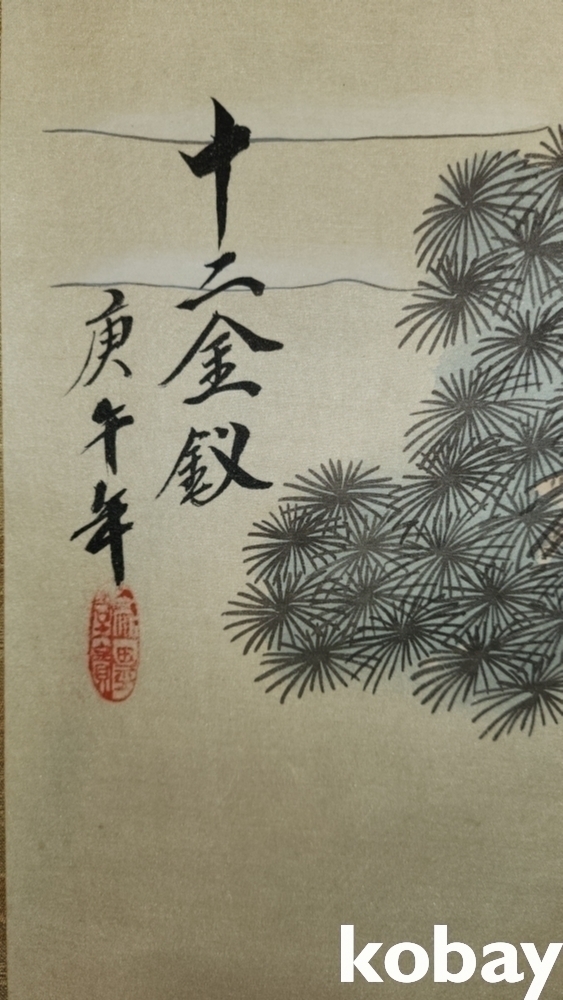 十二金釵
庚午年
kobay